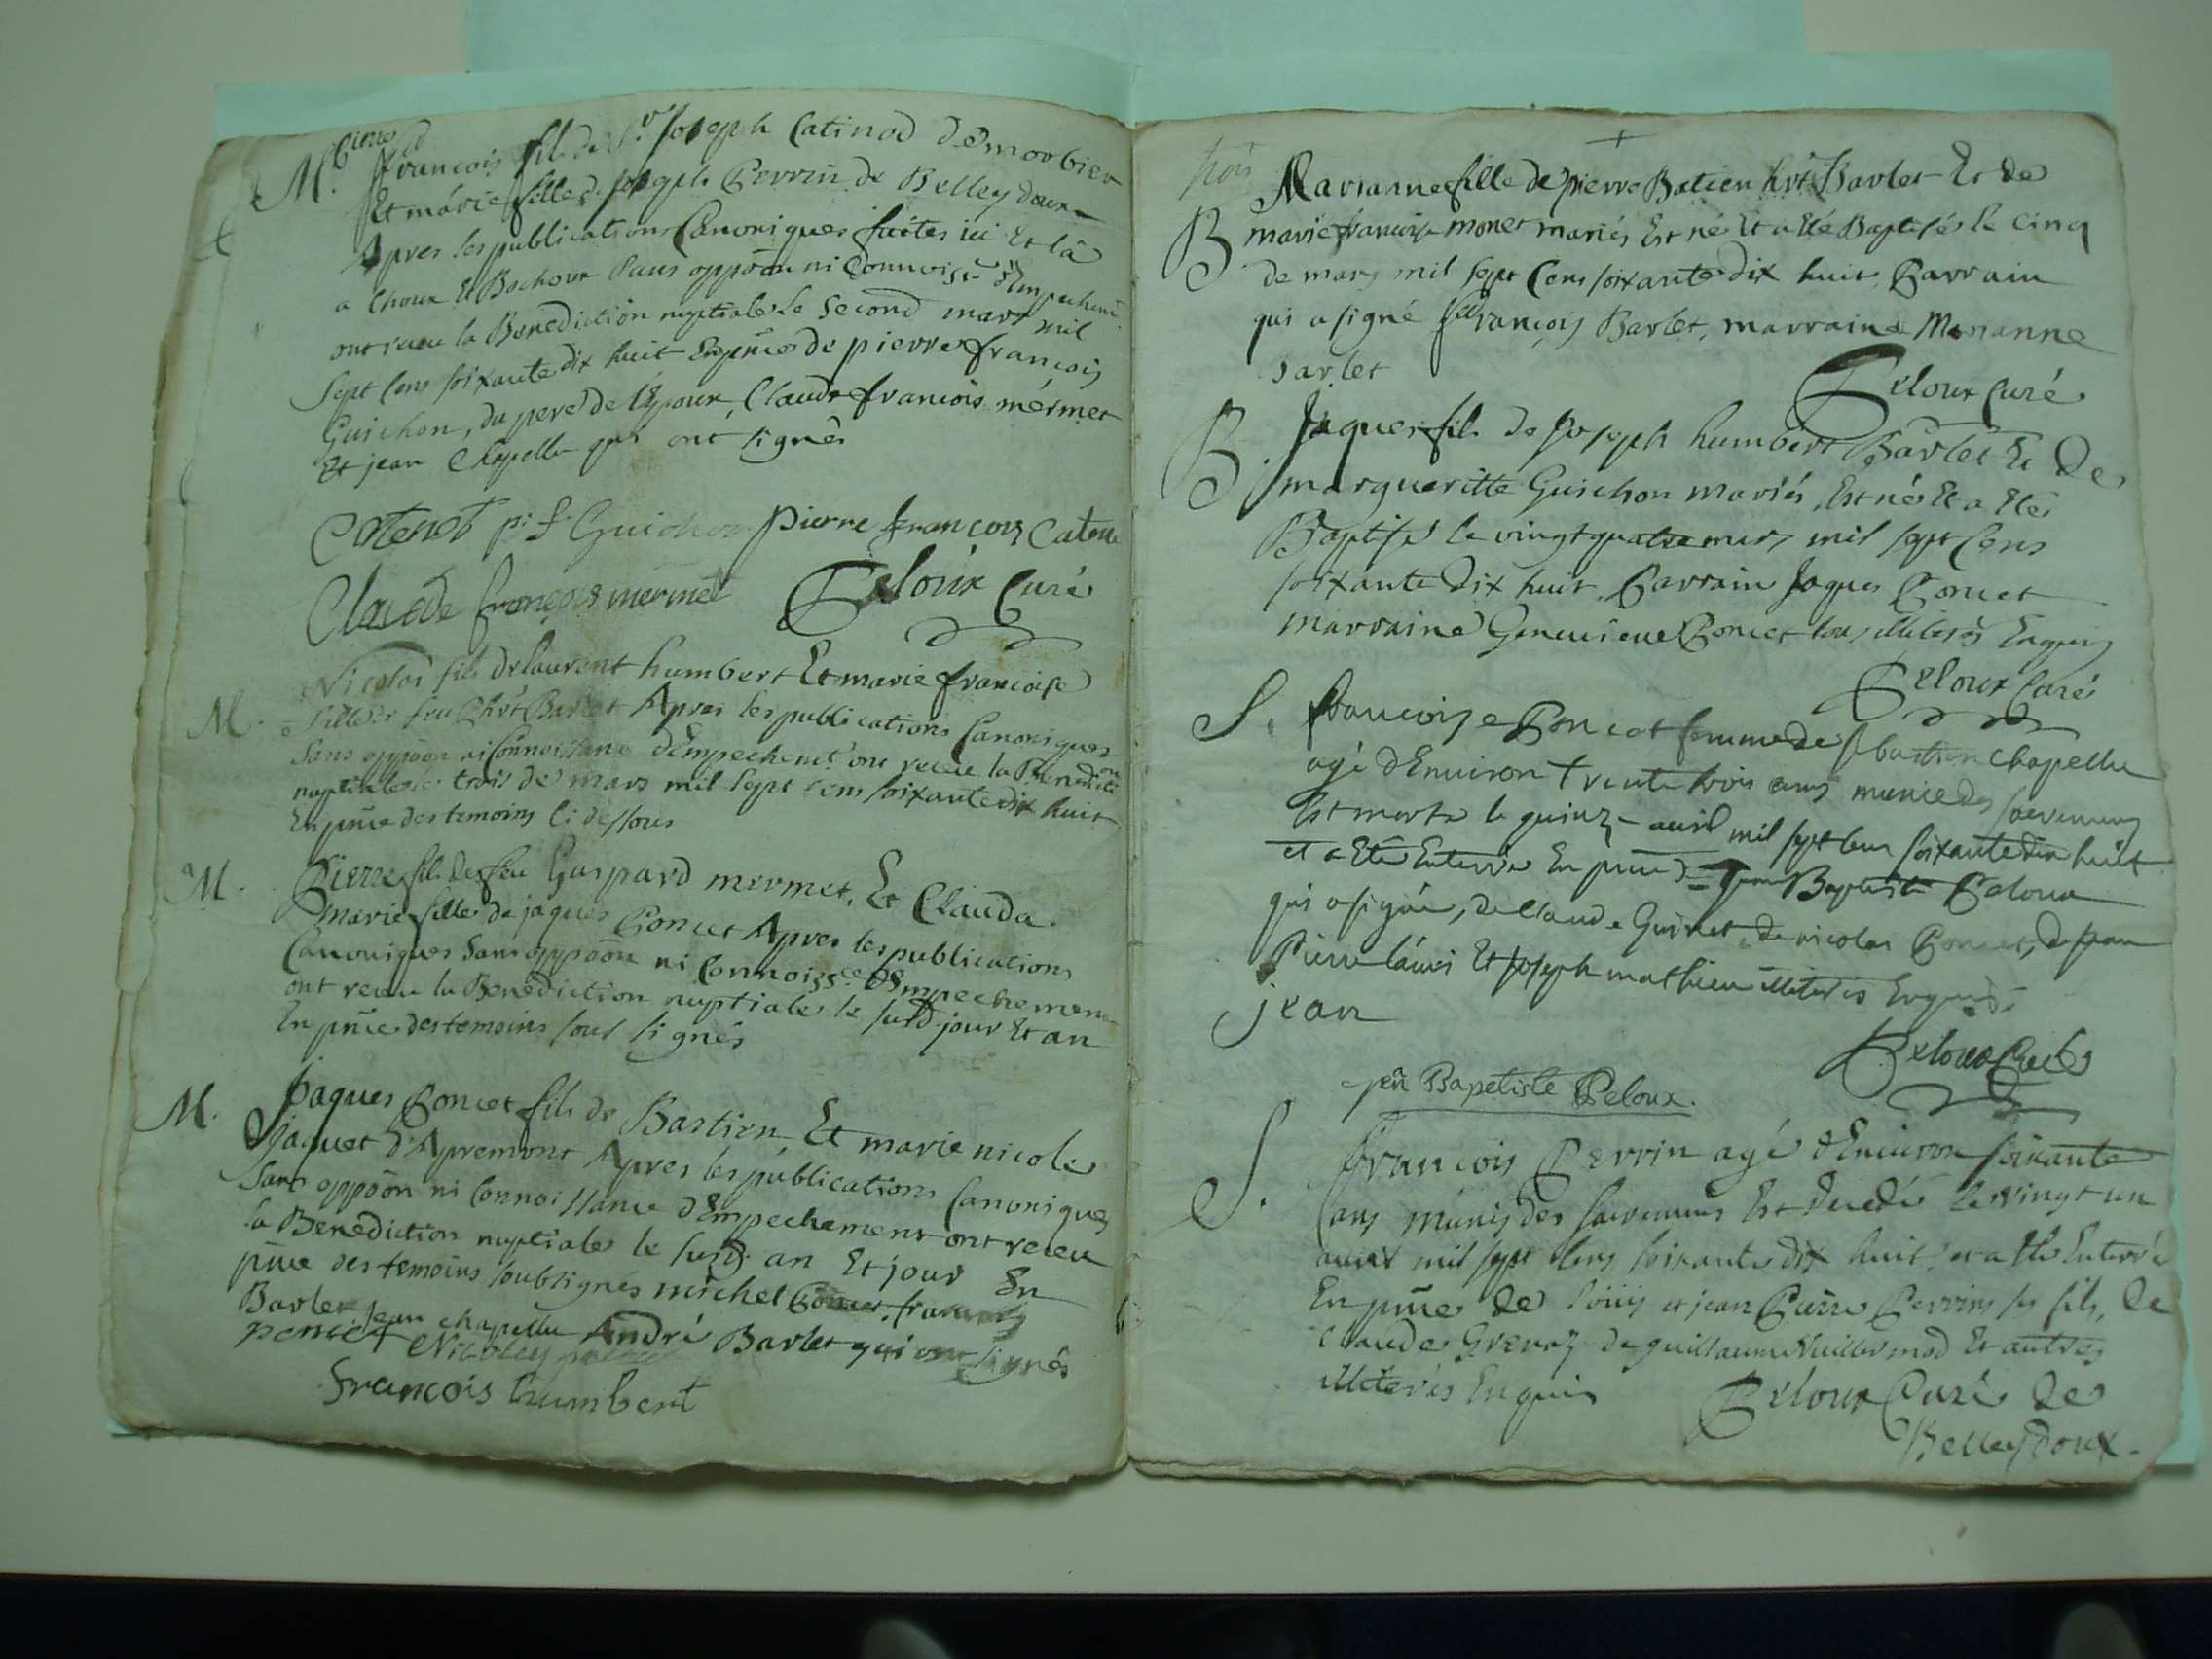 pierre
M. francois fils de Sr Joseph Catinod de morbier
Et marie fille de Joseph Perrin de Belleydoux
Apres les publications Canoniques faites ici Et là
a Choux Et Bochoux sans oppoôn ni Connoisce d'Empechemt
ont receu la Benediction nuptiale le second mars mil
sept cens soixante dix huit En pñce de pierre françois
Guichon, du pere de l'Epoux, Claude francois mermet
Et jean Chapelle qui ont signés
Catenod p: f. Guichon pierre francois Catenod
Claude francois mermet Peloux Curé
Nicolas fils de laurent humbert Et marie francoise
M. fille de feu Chrt Barlet Apres les publications Canoniques
sans oppoôn ni Connoissance d'Empechemt ont receu la Benedictiôn
nuptiale le trois de mars mil sept cens soixante dix huit
En pñce des temoins Ci dessous
M. Pierre fils de feu Gaspard mermet, Et Clauda
marie fille de jaques Poncet Apres les publications
Canoniques sans oppoôn ni Connoissce d'Empechement
ont receu la Benediction nuptiale le susd jour Et an
En pñce des temoins sous signés
M. Jaques Poncet fils de Bastien Et marie nicole
jaquet d'Apremont Apres les publications Canoniques
sans oppoôn ni Connoissance d'Empechement ont receu
la Benediction nuptiale le susd. an Et jour En
pñce des temoins soubsignés michel Poncet, francois
Barlet jean chapelle André Barlet qui ont signés
poncet Nicolas
francois humbert
trois
Marianne fille de pierre Batien hrt Barlet Et de
B marie francoise monet mariés Est né Et a Eté Baptisés le cinq
de mars mil sept cens soixante dix huit, Parrain
qui a signé francois Barlet, marraine Marianne
barlet
Peloux Curé
B. Jaques fils de Joseph humbert Barlet Et de
margueritte Guichon mariés, Est né Et a Eté
Baptisé le vingt quatre mars mil sept cens
soixante dix huit, Parrain Jaques Poncet
marraine Genevieve Poncet tous illiterés Enquis
Peloux Curé
S. francoise Poncet femme de sbastien Chapelle
agé d'Environ trente trois ans munie des sacremens
Est morte le quinze avril mil sept cens soixante dix huit
et a Eté Enterrée En pñce de Jean Baptiste Peloux
qui a signé, de Claude Guinet, de nicolas Poncet, de jean
Pierre Et Joseph mathieu illiterés Enquis
jean
Peloux Curé
jeñ Bapetiste Peloux.
S. francois Perrin agé d'Environ soixante
ans munis des sacremens Est decedé le vingt un
avril mil sept cens soixante dix huit, et a Eté Enterré
En pñce de loüis et jean Pierre Perrin ses fils, de
Claude Grenoz de guillaume Vuillermod Et autres
illiterés Enquis Peloux Curé de
Belleydoux.